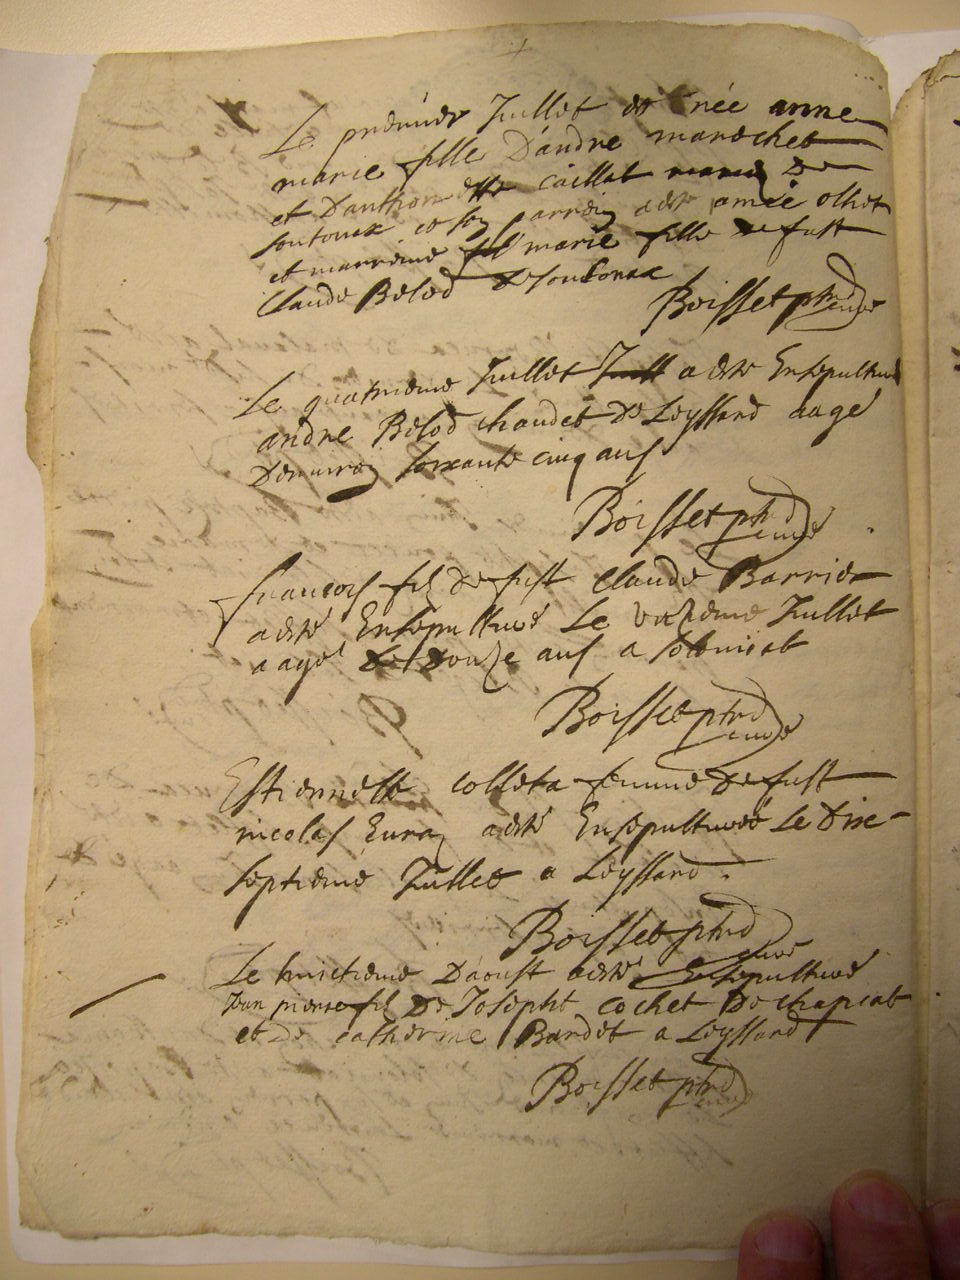 Le premier Juillet est née anne
marie fille D'andre marechet
et D'anthoinette caillat de
soutonax et son parrein a esté amée
et marreine marie fille de fust
Claude Belod de soutonax
Boisset ptre curé
Le quatrieme Juillet a esté Ensepulturé
andre Belod chaudet De Leyssard aagé
Denviron soixante cinq ans
Boisset ptre curé
francois fils de fust Claude Barrier
a esté Ensepulturé Le Juillet
aagé de douze ans a solomiat
Boisset ptre curé
Estiennette colleta femme de fust
nicolas a esté Ensepulturée Le Dixe-
septieme Juillet a Leyssard.
Boisset ptre curé
Le huictieme D'aoust a esté Ensepulturé
Jean pierre fils De Josepht cochet De chapiat
et De catherine Bardet a Leyssard
Boisset ptre curé